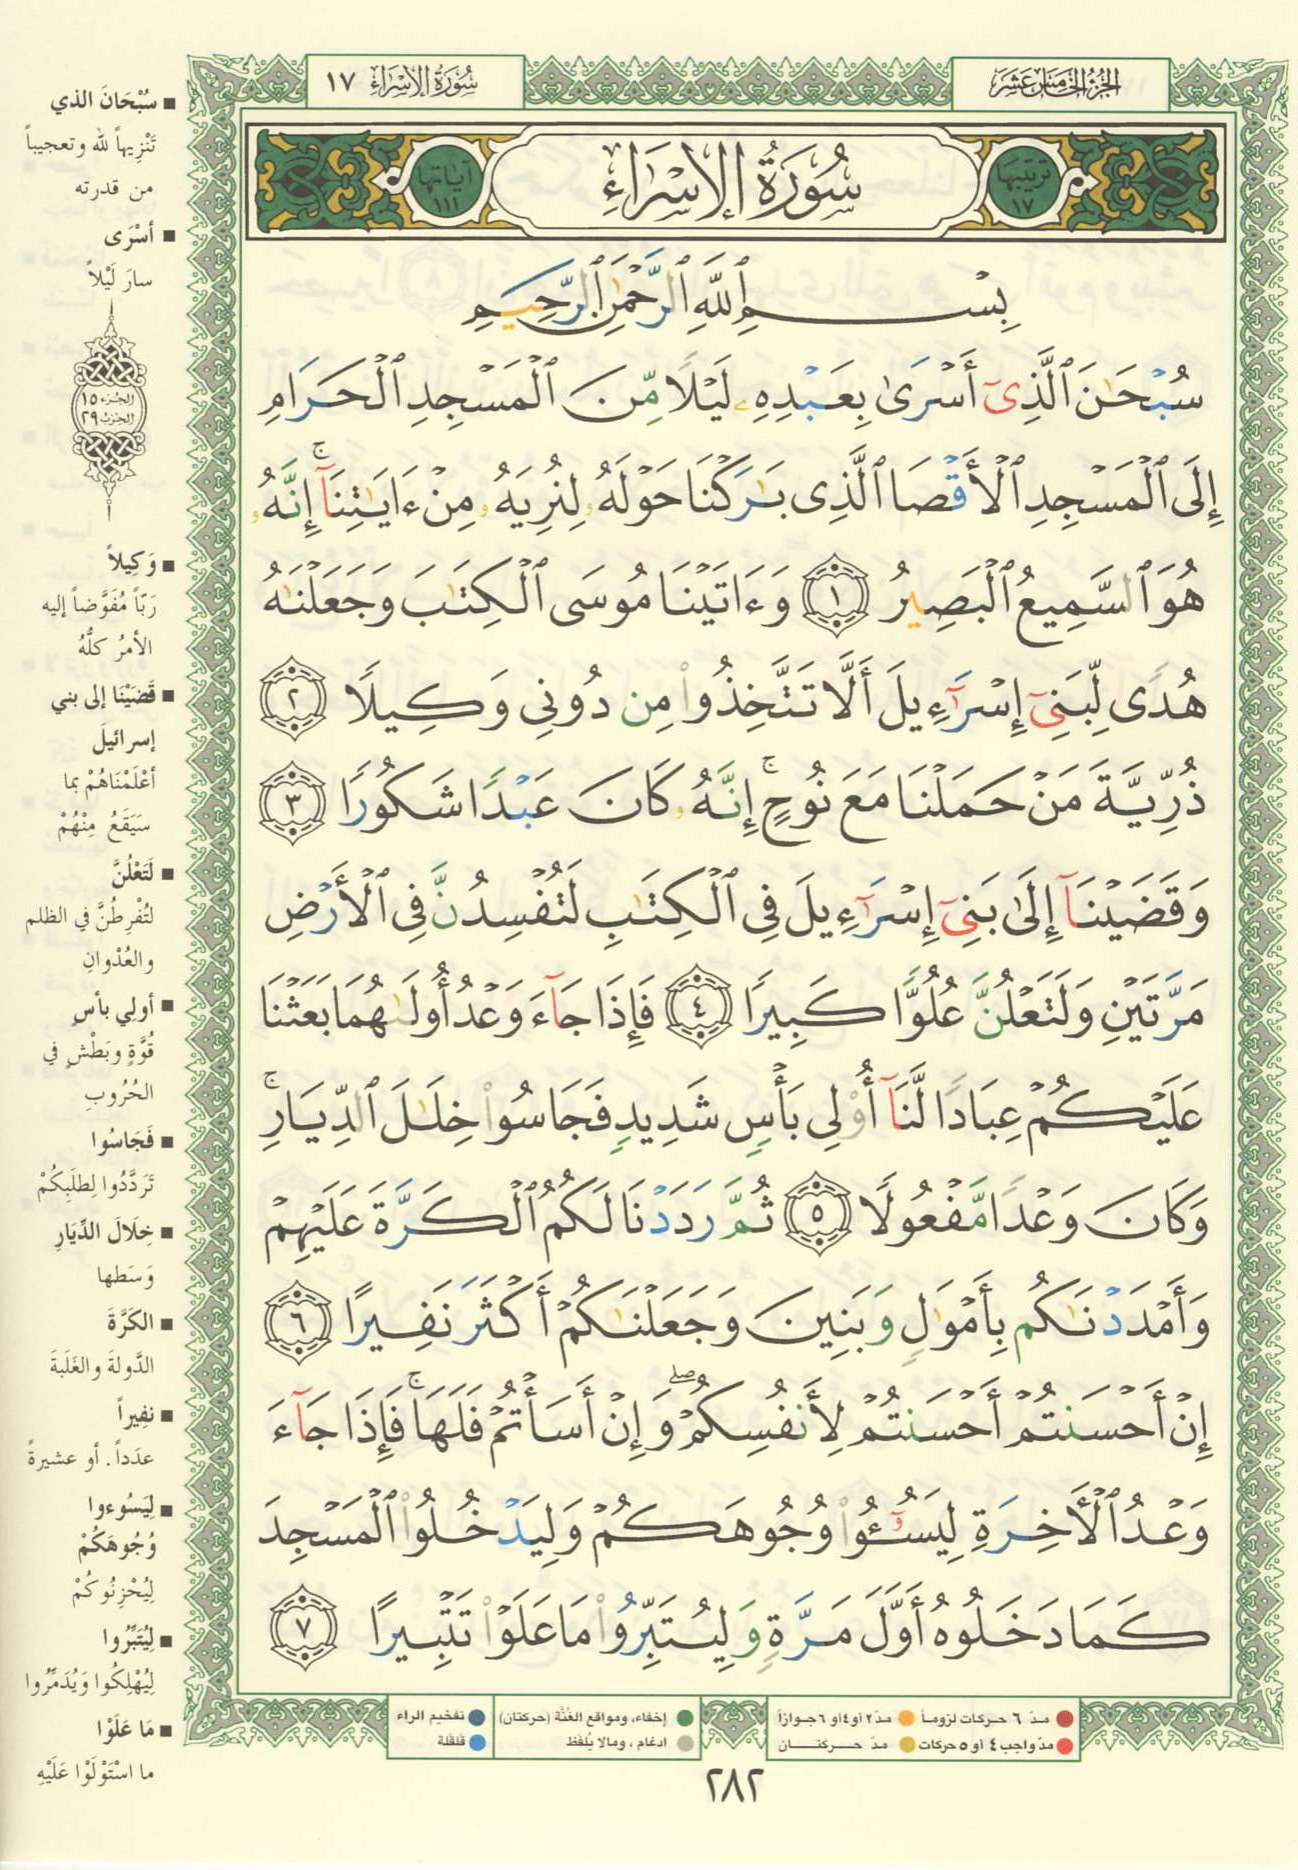 الجزء الخامس عشر
سورة الإسراء ١٧
ترتيبها ١٧
سُورَةُ الإِسْرَاءِ
آياتها ١١١
بِسْمِ ٱللَّهِ ٱلرَّحْمَٰنِ ٱلرَّحِيمِ
سُبْحَٰنَ ٱلَّذِىٓ أَسْرَىٰ بِعَبْدِهِۦ لَيْلًا مِّنَ ٱلْمَسْجِدِ ٱلْحَرَامِ
إِلَى ٱلْمَسْجِدِ ٱلْأَقْصَا ٱلَّذِى بَٰرَكْنَا حَوْلَهُۥ لِنُرِيَهُۥ مِنْ ءَايَٰتِنَآ ۚ إِنَّهُۥ
هُوَ ٱلسَّمِيعُ ٱلْبَصِيرُ ١ وَءَاتَيْنَا مُوسَى ٱلْكِتَٰبَ وَجَعَلْنَٰهُ
هُدًى لِّبَنِىٓ إِسْرَٰٓءِيلَ أَلَّا تَتَّخِذُوا۟ مِن دُونِى وَكِيلًا ٢
ذُرِّيَّةَ مَنْ حَمَلْنَا مَعَ نُوحٍ ۚ إِنَّهُۥ كَانَ عَبْدًا شَكُورًا ٣
وَقَضَيْنَآ إِلَىٰ بَنِىٓ إِسْرَٰٓءِيلَ فِى ٱلْكِتَٰبِ لَتُفْسِدُنَّ فِى ٱلْأَرْضِ
مَرَّتَيْنِ وَلَتَعْلُنَّ عُلُوًّا كَبِيرًا ٤ فَإِذَا جَآءَ وَعْدُ أُولَىٰهُمَا بَعَثْنَا
عَلَيْكُمْ عِبَادًا لَّنَآ أُو۟لِى بَأْسٍ شَدِيدٍ فَجَاسُوا۟ خِلَٰلَ ٱلدِّيَارِ ۚ
وَكَانَ وَعْدًا مَّفْعُولًا ٥ ثُمَّ رَدَدْنَا لَكُمُ ٱلْكَرَّةَ عَلَيْهِمْ
وَأَمْدَدْنَٰكُم بِأَمْوَٰلٍ وَبَنِينَ وَجَعَلْنَٰكُمْ أَكْثَرَ نَفِيرًا ٦
إِنْ أَحْسَنتُمْ أَحْسَنتُمْ لِأَنفُسِكُمْ ۖ وَإِنْ أَسَأْتُمْ فَلَهَا ۚ فَإِذَا جَآءَ
وَعْدُ ٱلْأَخِرَةِ لِيَسُۥٓـُٔوا۟ وُجُوهَكُمْ وَلِيَدْخُلُوا۟ ٱلْمَسْجِدَ
كَمَا دَخَلُوهُ أَوَّلَ مَرَّةٍ وَلِيُتَبِّرُوا۟ مَا عَلَوْا۟ تَتْبِيرًا ٧
سُبْحَانَ الذي
تَنْزِيهاً لله وتعجيباً
من قدرته
أَسْرَى
سارَ لَيْلاً
الجزء ١٥
الحزب ٢٩
وَكِيلاً
رَبّاً مُفَوَّضاً إليه
الأمرُ كلُّهُ
قَضَيْنَا إلى بني
إسرائيلَ
أعْلَمْنَاهُمْ بما
سَيَقَعُ مِنْهُمْ
لَتَعْلُنَّ
لتُفْرِطُنَّ في الظلم
والعُدْوانِ
أولي بأسٍ
قُوَّةٍ وبَطْشٍ في
الحُرُوبِ
فَجَاسُوا
تَرَدَّدُوا لِطلَبِكُمْ
خِلَالَ الدِّيَارِ
وَسَطها
الكَرَّةَ
الدَّولةَ والغَلَبةَ
نفِيراً
عدَداً. أو عشيرةً
لِيَسُوءوا
وُجُوهَكُمْ
لِيُحْزِنُوكُمْ
لِيُتَبِّرُوا
لِيُهْلِكُوا وَيُدَمِّرُوا
مَا عَلَوْا
ما اسْتَوْلَوْا عَلَيْهِ
مدّ ٦ حركات لزوماً
مدّ ٢ أو ٤ أو ٦ جوازاً
مدّ واجب ٤ أو ٥ حركات
مدّ حركتان
إخفاء، ومواقع الغُنَّة (حركتان)
ادغام، ومالا يُلفَظ
تفخيم الراء
قلقلة
٢٨٢